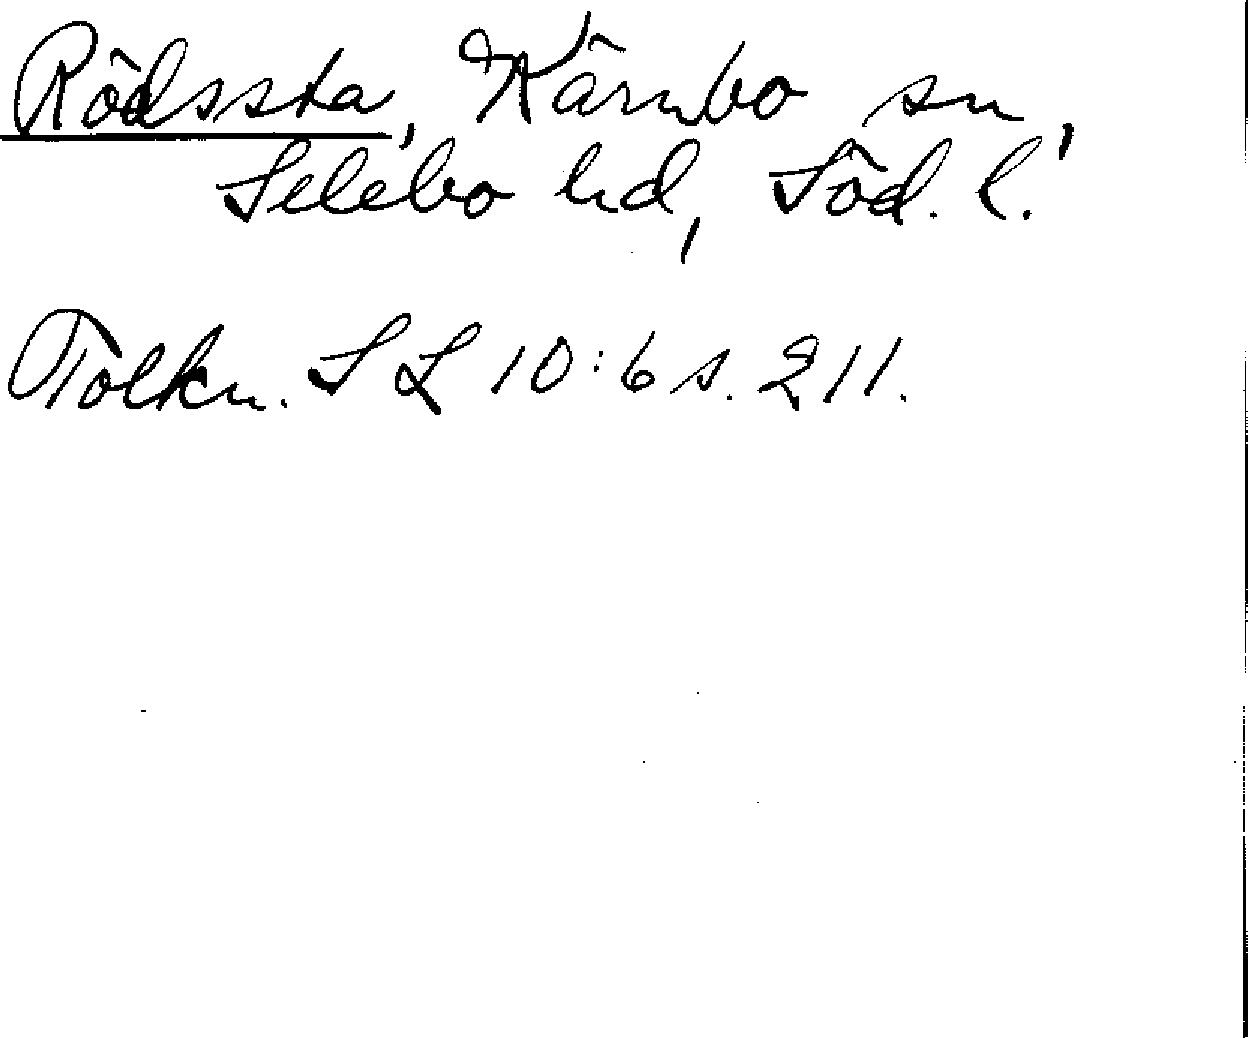 Rödssta, Kärnbo sn,
Selebo hd, Söd. l.
Tolkn. SL 10:6 s. 211.